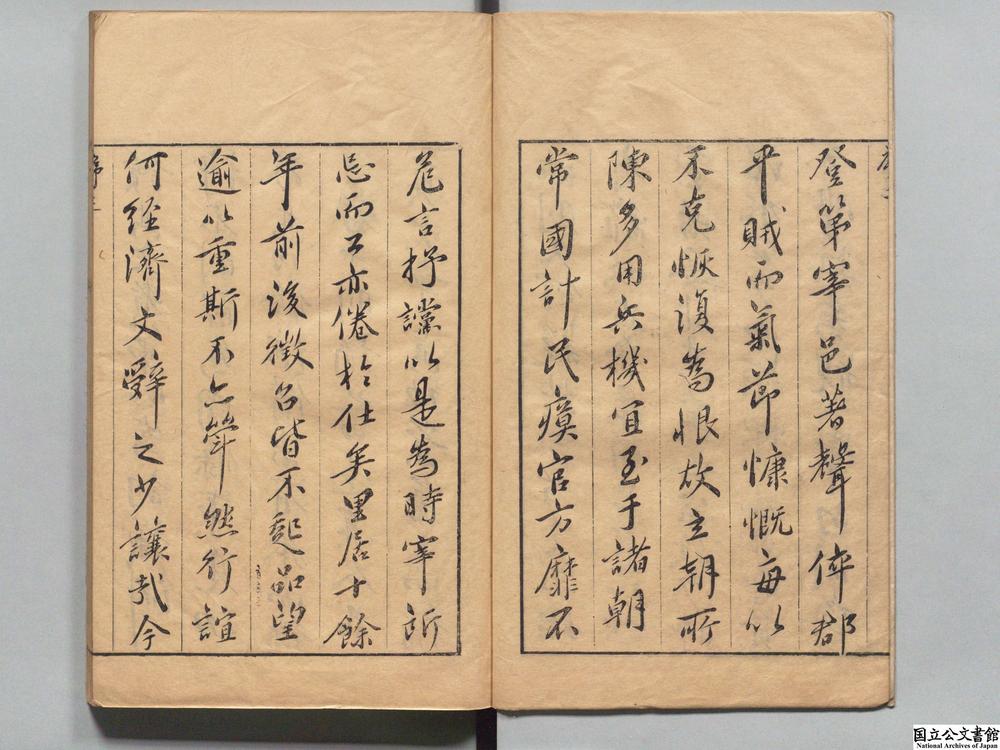 登第宰邑著聲倅郡
平賊而氣節慷慨每以
不克恢復為恨故立朝所
陳多用兵機宜至于諸朝
常國計民瘼官方靡不
危言抒讜以是為時宰所
忌而公亦倦於仕矣里居十餘
年前後徵召皆不起品望
逾以重斯不亦犖然行誼
何經濟文辭之少讓哉今
序三
国立公文書館
National Archives of Japan